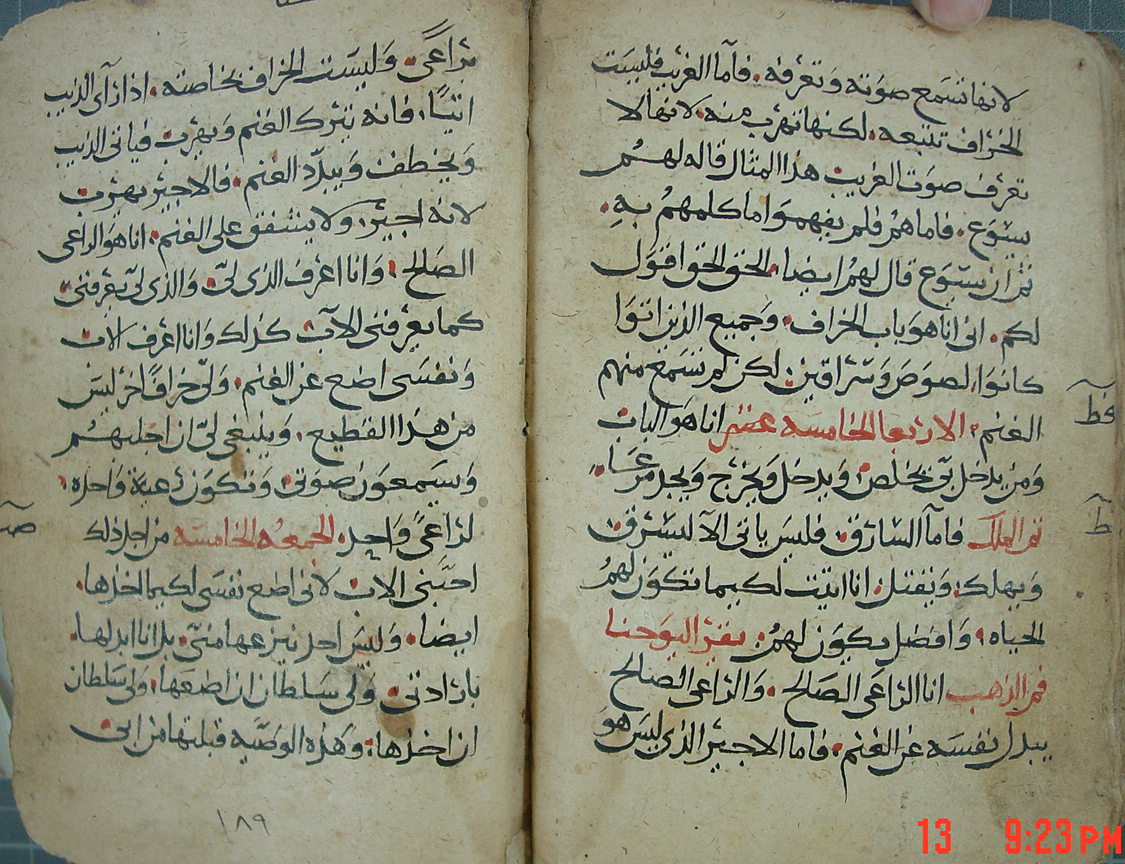 لانها تسمع صوته وتعرفه. فاما الغريب فليست
الخراف تتبعه. لكنها تهرب منه. لانها لا
تعرف صوت الغريب هذا المثال قاله لهم
يسوع. فاما هم فلم يفهموا ما كلمهم به.
ثم ان يسوع قال لهم ايضا. الحق الحق اقول
لكم. اني انا هو باب الخراف. وجميع الذين اتوا
كانوا لصوص وسراقين. لكن لم تسمع منهم
الغنم. الاربعا الخامسه عشر انا هو الباب
ومن يدخل بي يخلص. ويدخل ويخرج ويجد مرعا.
فم الملك فاما السارق. فليس ياتي الا ليسرق
ويهلك. ويقتل. انا اتيت لكيما تكون لهم
الحياه. وافضل يكون لهم. يقرا ليوحنا
فم الذهب انا الراعي الصالح. والراعي الصالح
يبدل نفسه عن الغنم. فاما الاجير الذي ليس هو
براعي. وليست الخراف بخاصته. اذا رآي الذيب
اتيًا. فانه يترك الغنم ويهرب فياتي الذيب
ويخطف ويبدّد الغنم. فالاجير يهرب
لانه اجير. ولا يشفق على الغنم. انا هو الراعي
الصالح. وانا اعرف الذي لي. والذي لي يعرفني
كما يعرفني الاب. كذلك وانا اعرف الاب
ونفسي اضع عن الغنم. ولي خرافًا اخر ليس
من هذا القطيع. وينبغي لي ان اجلبهم
وسيسمعون صوتي. وتكون رعية واحده.
لراعي واحد. الجمعه الخامسه من اجل ذلك
احبني الاب لاني اضع نفسي لكيما اخذها.
ايضا. وليس احد ينزعها مني. بل انا ابدلها
بارادتي. ولي سلطان ان اضعها. ولي سلطان
ان اخذها. وهذه الوصيه قبلتها من ابي
١٨٩
13 9:23 PM